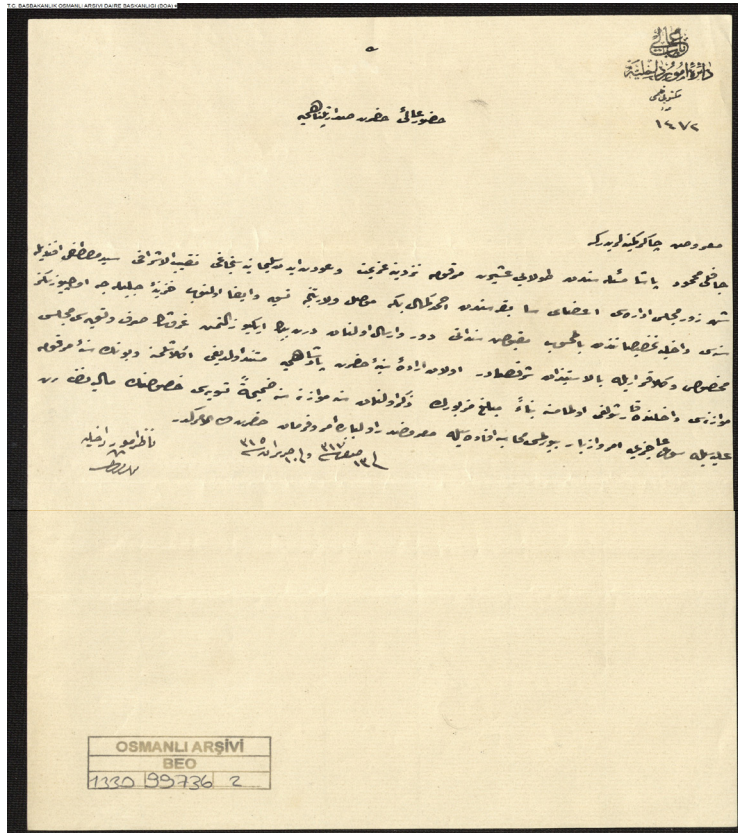 T.C. BASBAKANLIK OSMANLI ARSIVI DAIRE BASKANLIGI (BOA)
باب عالی
دائرهٔ امور داخلیه
مکتوبی قلمی
١٤٧٢
حضور عالئ حضرت صدارتپناهی یه
معروض چاکر کمینه لریدر که
جافلی محمود پاشا مسئله سندن طولایی عشیرت مرقومه نزدینه عزیمت و عودت ایدن سلیمانیه سنجاغی نقیب الاشرافی سید مصطفی افندیله
شهرزور مجلس اداره سی اعضای سابقه سندن احمد بکه موصل ولایتنجه تسویه وایفا اولنوب خزینهٔ جلیله جه
سنه سی داخلیه تخصیصاتندن بالمحسوب مقبوض سنداتی دور وارسال اولنان درت بیك ایکیوز غروشك صرف و تسویه سی مجلس
مخصوص وکلا قراریله بالاستیذان شرفصادر اولان ارادهٔ سنیهٔ حضرت پادشاهی یه مستند اولدیغی آکلاشلمش وبونك سنهٔ مرقومه
موازنه سی داخلنده قارشولغی اولمامسنه بناءً مبلغ مزبورك ذکر اولنان سنه موازنه سنه ضمیمةً تسویه سی خصوصنك مالیه نظارت
علیه سنه سوق عاجزیله امر وازبار بیورلمسی محاسبه افاده سیله معروضدر اولبابده امر وفرمان حضرت من له الامرکدر
فی ١٣ صفر سنه ٣١٧ وفی ١٠ حزیران سنه ٣١٥
ناظر امور داخلیه
OSMANLI ARŞİVİ
BEO
1330 99736 2